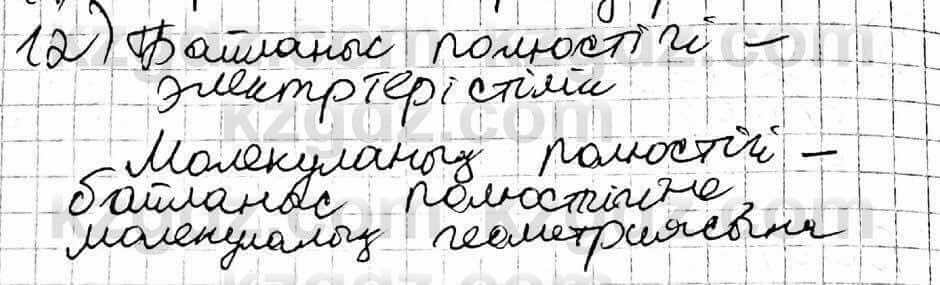 12) Байланыс полюстігі –
электртерістілік
Молекуланың полюстігі –
байланыс полюстігіне
молекулалық геометриясына